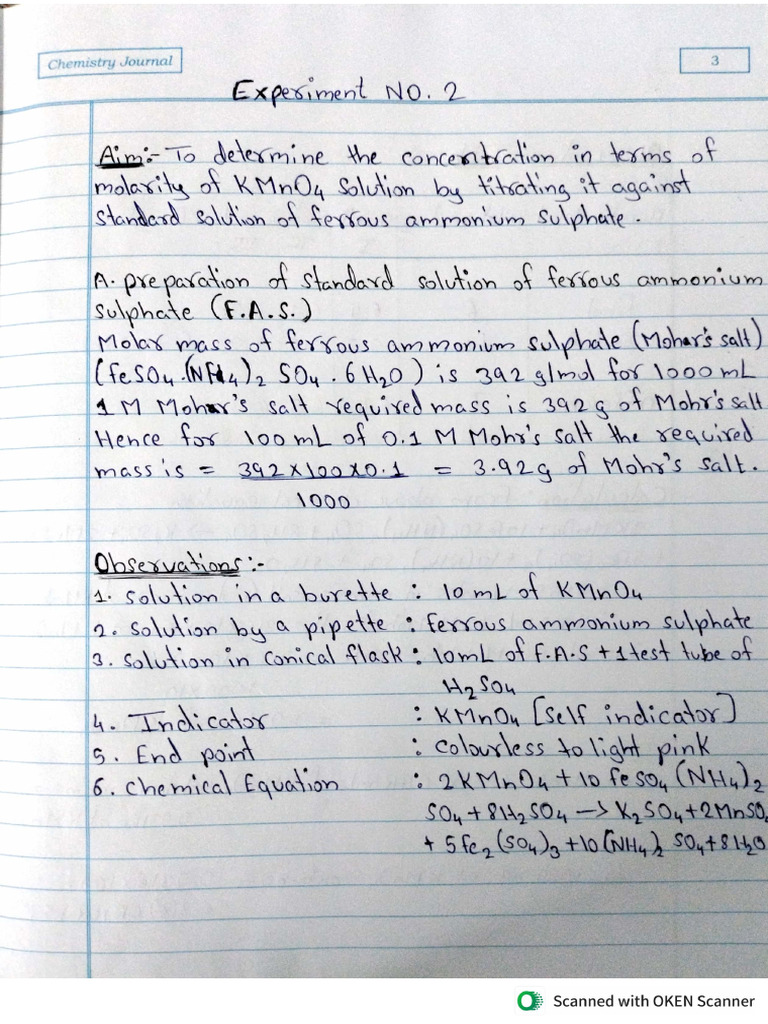 Chemistry Journal
3
Experiment NO. 2
Aim:- To determine the concentration in terms of
molarity of KMnO4 solution by titrating it against
standard solution of ferrous ammonium sulphate.
A. preparation of standard solution of ferrous ammonium
sulphate (F.A.S.)
Molar mass of ferrous ammonium sulphate (Mohar's salt)
(feSO4.(NH4)2 SO4 . 6H2O) is 392 g/mol for 1000 mL
1 M Mohar's salt required mass is 392 g of Mohr's salt
Hence for 100 mL of 0.1 M Mohr's salt the required
mass is = 392×100×0.1 / 1000 = 3.92g of Mohr's salt.
Observations:-
1. solution in a burette : 10 mL of KMnO4
2. solution by a pipette : ferrous ammonium sulphate
3. solution in conical flask : 10mL of F.A.S + 1 test tube of
H2SO4
4. Indicator : KMnO4 [self indicator]
5. End point : colourless to light pink
6. chemical Equation : 2KMnO4 + 10 feSO4 (NH4)2
SO4 + 8H2SO4 → K2SO4 + 2MnSO4
+ 5fe2(SO4)3 + 10(NH4)2 SO4 + 8H2O
Scanned with OKEN Scanner